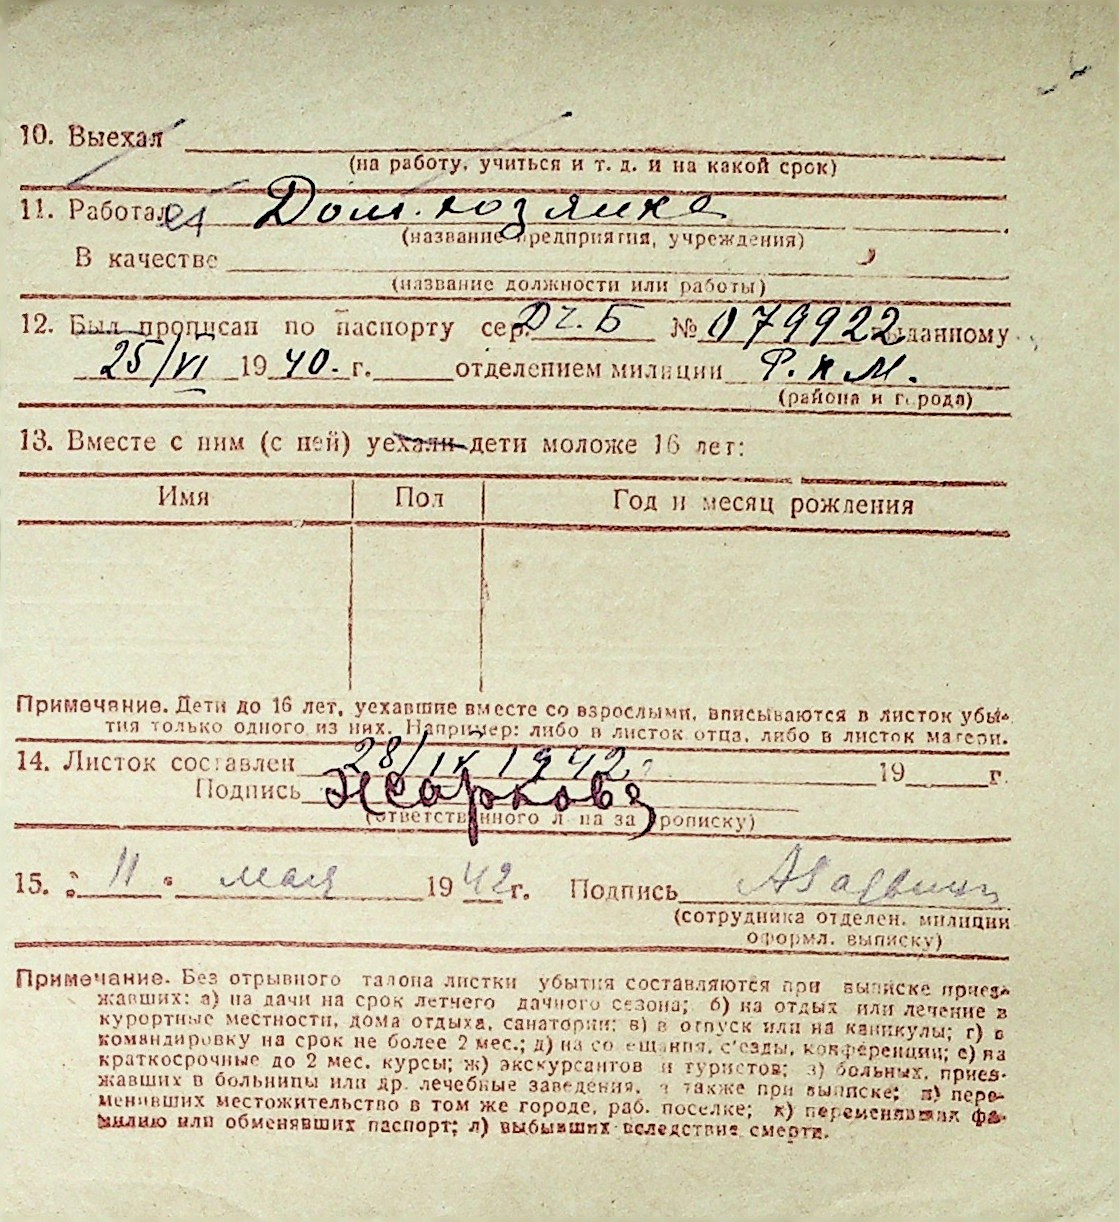 10. Выехал
(на работу, учиться и т. д. и на какой срок)
11. Работает Дом. хозяйка
(название предприятия, учреждения)
В качестве
(название должности или работы)
12. Был прописан по паспорту сер. ДЧ. Б № 079922 выданному
25/VI 1940. г. отделением милиции Р. К М.
(района и города)
13. Вместе с ним (с ней) уехали дети моложе 16 лет:
Имя Пол Год и месяц рождения
Примечание. Дети до 16 лет, уехавшие вместе со взрослыми, вписываются в листок убы-
тия только одного из них. Например: либо в листок отца, либо в листок матери.
14. Листок составлен 28/IV 1942 19 г.
Подпись Жаркова
(ответственного лица за прописку)
15. " 11 " мая 1942 г. Подпись
(сотрудника отделен. милиции
оформл. выписку)
Примечание. Без отрывного талона листки убытия составляются при выписке приез-
жавших: а) на дачи на срок летнего дачного сезона; б) на отдых или лечение в
курортные местности, дома отдыха, санатории; в) в отпуск или на каникулы; г) в
командировку на срок не более 2 мес.; д) на совещания, с'езды, конференции; е) на
краткосрочные до 2 мес. курсы; ж) экскурсантов и туристов; з) больных, приез-
жавших в больницы или др. лечебные заведения, а также при выписке; и) пере-
менивших местожительство в том же городе, раб. поселке; к) переменивших фа-
милию или обменявших паспорт; л) выбывших вследствие смерти.